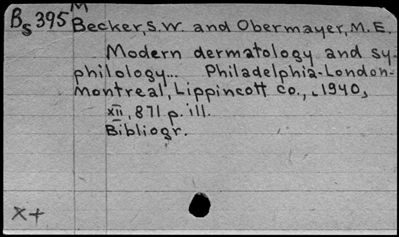 M
Bs 395 Becker, S.W. and Obermayer, M.E.
Modern dermatology and sy-
philology... Philadelphia-London-
Montreal, Lippincott Co., [1940]
XII, 871 p. ill.
Bibliogr.
X+